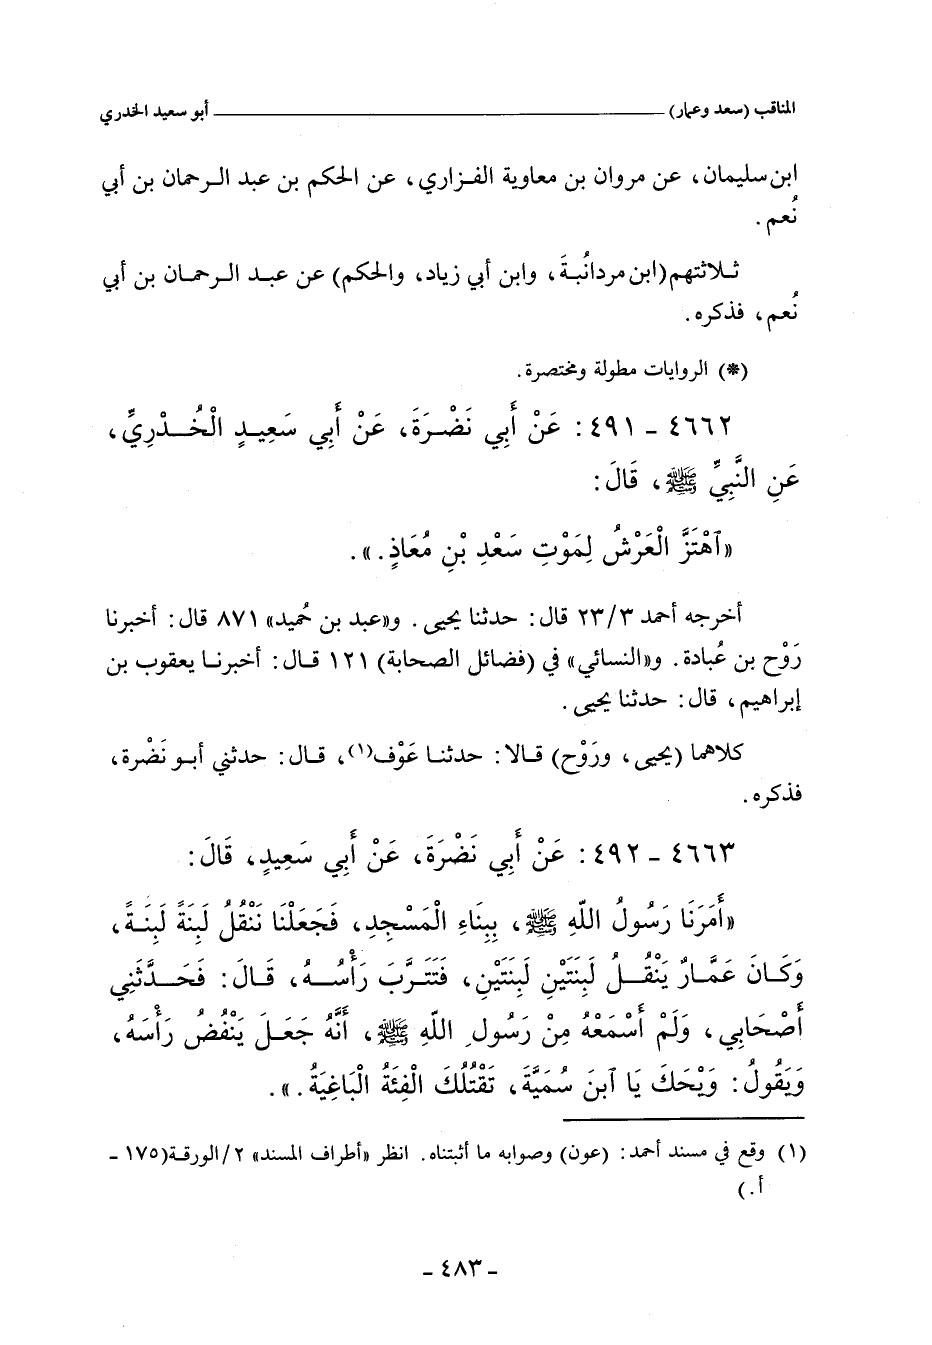 المناقب (سعد وعمار) أبو سعيد الخدري
ابن سليمان، عن مروان بن معاوية الفزاري، عن الحكم بن عبد الرحمان بن أبي
نُعم.
ثلاثتهم (ابن مردانُبَة، وابن أبي زياد، والحكم) عن عبد الرحمان بن أبي
نُعم، فذكره.
(*) الروايات مطولة ومختصرة.
٤٦٦٢ - ٤٩١: عَنْ أَبِي نَضْرَةَ، عَنْ أَبِي سَعِيدٍ الْخُدْرِيِّ،
عَنِ النَّبِيِّ ﷺ، قَالَ:
«آهْتَزَّ الْعَرْشُ لِمَوْتِ سَعْدِ بْنِ مُعَاذٍ.».
أخرجه أحمد ٢٣/٣ قال: حدثنا يحيى. و«عبد بن حُميد» ٨٧١ قال: أخبرنا
رَوْح بن عُبادة. و«النسائي» في (فضائل الصحابة) ١٢١ قال: أخبرنا يعقوب بن
إبراهيم، قال: حدثنا يحيى.
كلاهما (يحيى، ورَوْح) قالا: حدثنا عَوْف(١)، قال: حدثني أبو نَضْرة،
فذكره.
٤٦٦٣ - ٤٩٢: عَنْ أَبِي نَضْرَةَ، عَنْ أَبِي سَعِيدٍ، قَالَ:
«أَمَرَنَا رَسُولُ اللهِ ﷺ، بِبِنَاءِ الْمَسْجِدِ، فَجَعَلْنَا نَنْقُلُ لَبِنَةً لَبِنَةً،
وَكَانَ عَمَّارٌ يَنْقُلُ لَبِنَتَيْنِ لَبِنَتَيْنِ، فَتَتَرَّبَ رَأْسُهُ، قَالَ: فَحَدَّثَنِي
أَصْحَابِي، وَلَمْ أَسْمَعْهُ مِنْ رَسُولِ اللهِ ﷺ، أَنَّهُ جَعَلَ يَنْفُضُ رَأْسَهُ،
وَيَقُولُ: وَيْحَكَ يَا آبنَ سُمَيَّةَ، تَقْتُلُكَ الْفِئَةُ الْبَاغِيَةُ.».
(١) وقع في مسند أحمد: (عون) وصوابه ما أثبتناه. انظر «أطراف المسند» ٢/الورقة(١٧٥ -
أ.)
- ٤٨٣ -